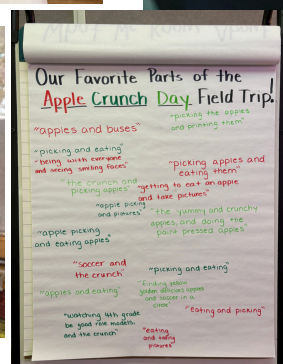 Our Favorite Parts of the
Apple Crunch Day Field Trip!
"picking the apples
and printing them"
"apples and buses"
"picking and eating"
"being with everyone
and seeing smiling faces"
"picking apples and
eating them"
"the crunch and
picking apples"
"getting to eat an apple
and take pictures"
"apple picking
and pictures"
"the yummy and crunchy
apples, and doing the
paint pressed apples"
"apple picking
and eating apples"
"soccer and
the crunch"
"picking and eating"
"apples and eating"
"finding yellow
golden delicious apples
and soccer in a
circle"
"watching 4th grade
be good role models,
and the crunch"
"eating and picking"
"eating
and taking
pictures"